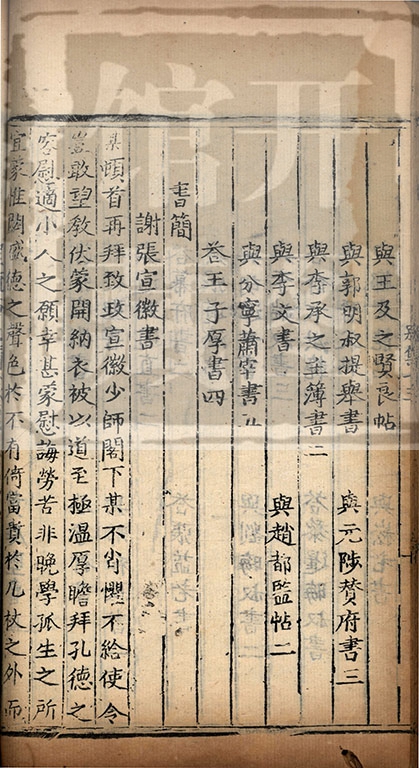 與王及之賢良帖
與郭明叔提舉書 與元陟贊府書三
與李承之主簿書二
與李文書 與趙都監帖二
與分寧蕭宰書九
荅王子厚書四
書簡
謝張宣徽書
某頓首再拜致政宣徽少師閣下某不肖懼不給使令
豈敢望教伏蒙開納衣被以道至極溫厚瞻拜孔德之
容慰適小人之願幸甚蒙慰誨勞苦非晚學孤生之所
宜蒙惟閎盛德之聲色於不有倚富貴於几杖之外而